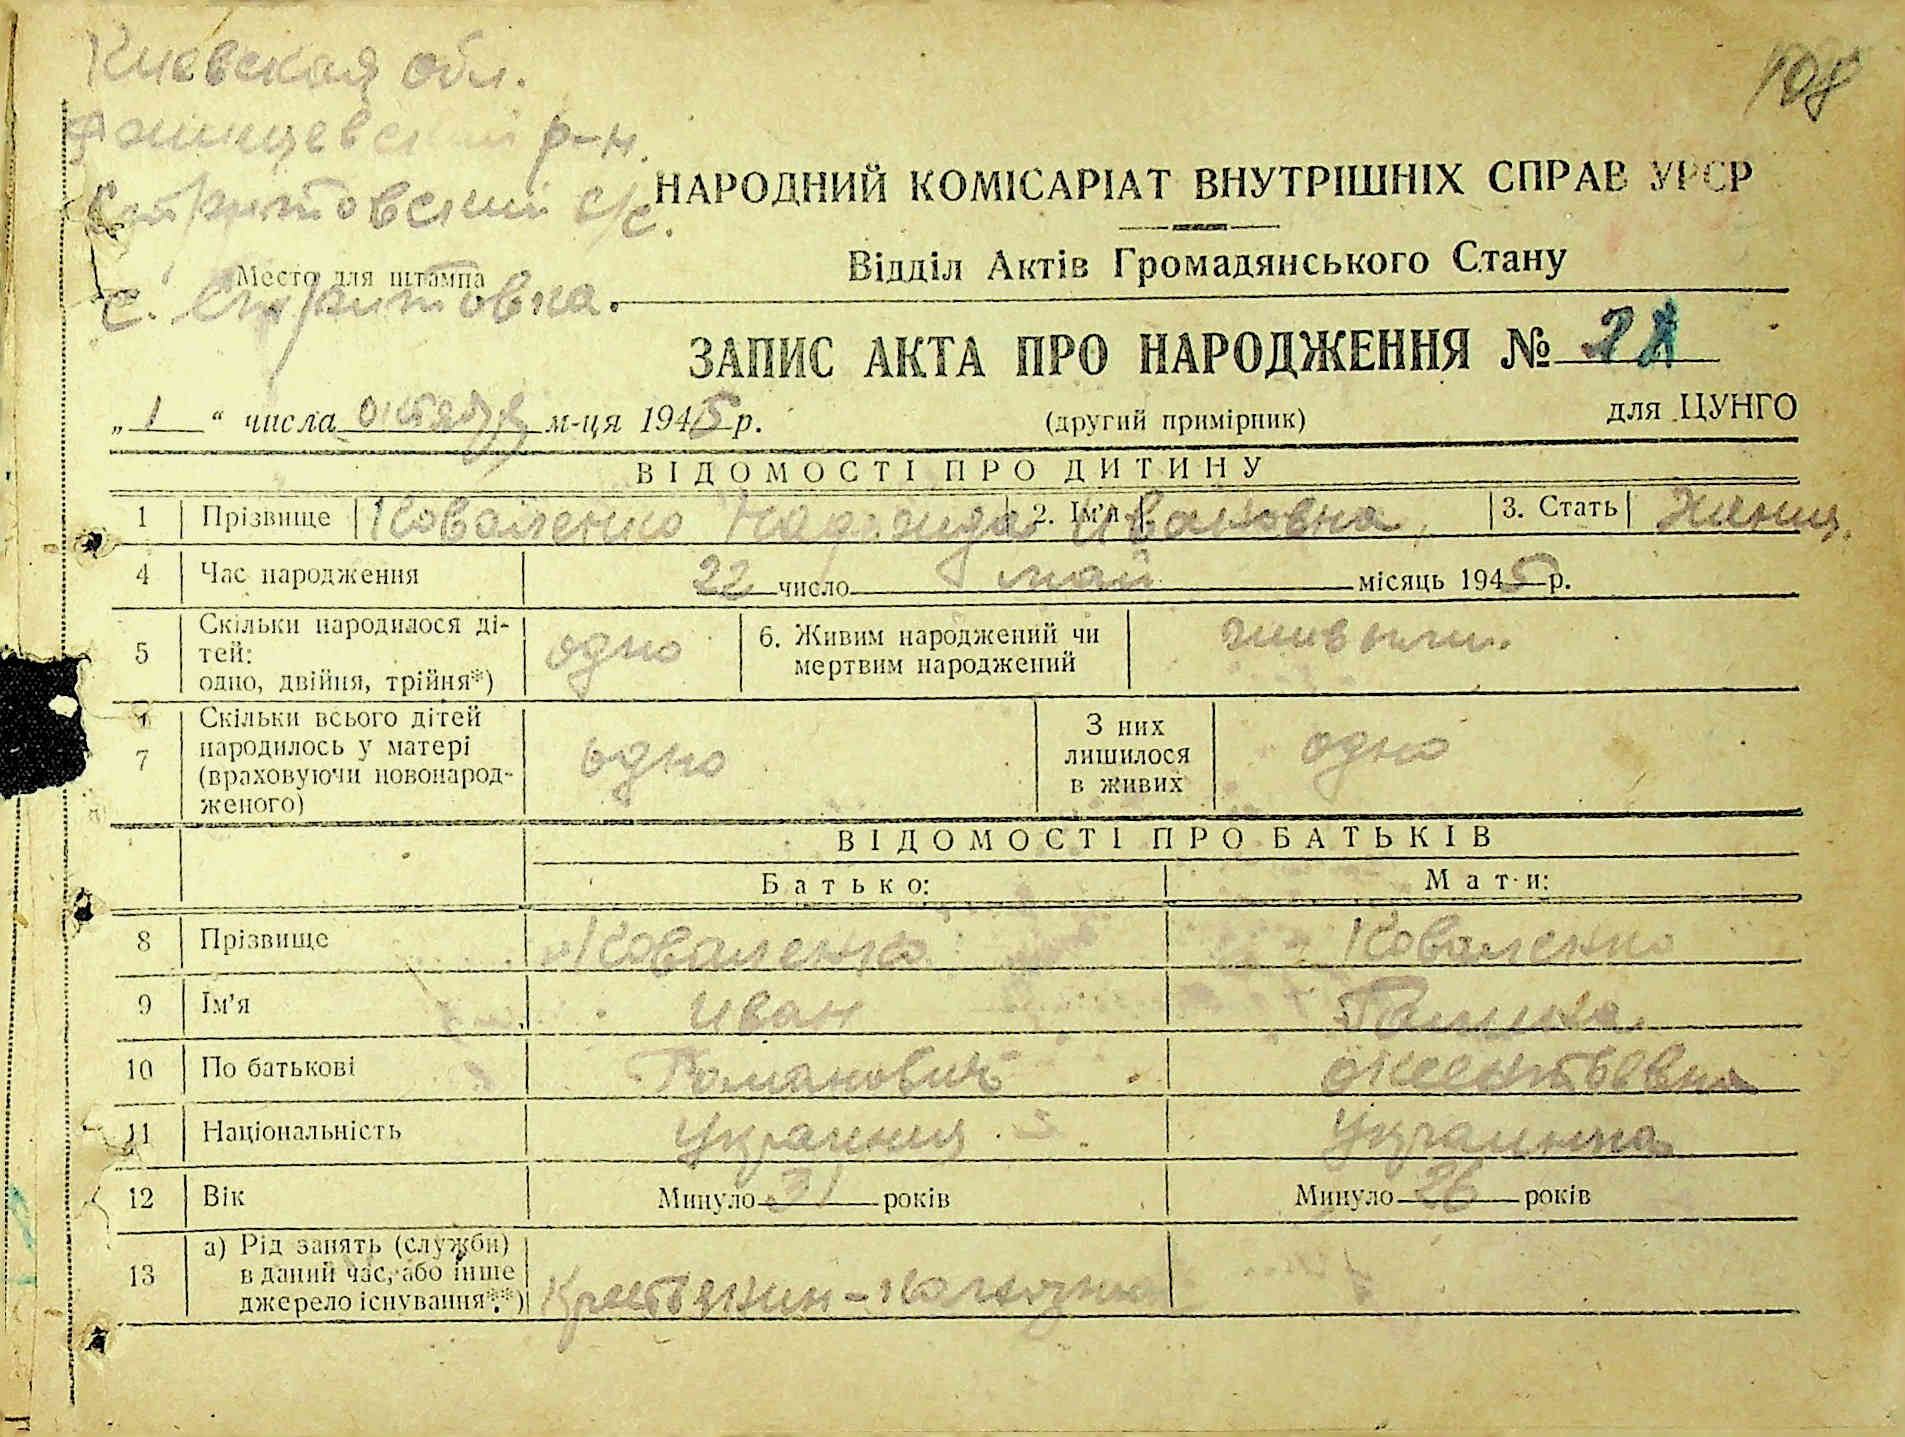 Киевская обл.
р-н.
с/с.
Место для штампа
с.
108
НАРОДНИЙ КОМІСАРІАТ ВНУТРІШНІХ СПРАВ УРСР
Відділ Актів Громадянського Стану
ЗАПИС АКТА ПРО НАРОДЖЕННЯ №
„ 1 “ числа октября м-ця 1945 р. (другий примірник) для ЦУНГО
ВІДОМОСТІ ПРО ДИТИНУ
1 Прізвище Коваленко Надежда 2. Ім'я Ивановна, 3. Стать
4 Час народження 22 число май місяць 1945 р.
5 Скільки народилося ді-
тей:
одно, двійня, трійня*) одно 6. Живим народжений чи
мертвим народжений живым.
7 Скільки всього дітей
народилось у матері
(враховуючи новонарод-
женого) одно З них
лишилося
в живих одно
ВІДОМОСТІ ПРО БАТЬКІВ
Батько: Мати:
8 Прізвище Коваленко Коваленко
9 Ім'я Иван Галина
10 По батькові Романович
11 Національність Украинец Украинка
12 Вік Минуло 31 років Минуло 26 років
13 а) Рід занять (служби)
в даний час, або інше
джерело існування**) Крестьянин-колхозник